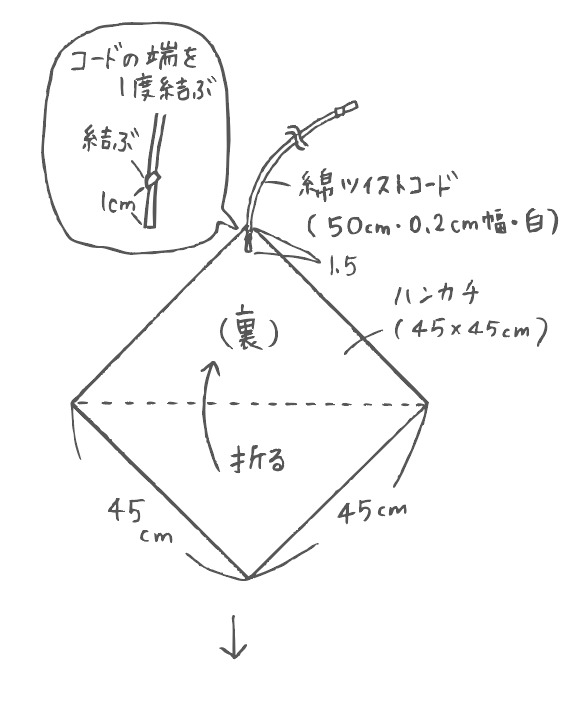 コードの端を
1度結ぶ
結ぶ
1cm
綿ツイストコード
(50cm・0.2cm幅・白)
1.5
ハンカチ
(45×45cm)
(裏)
折る
45
cm
45cm